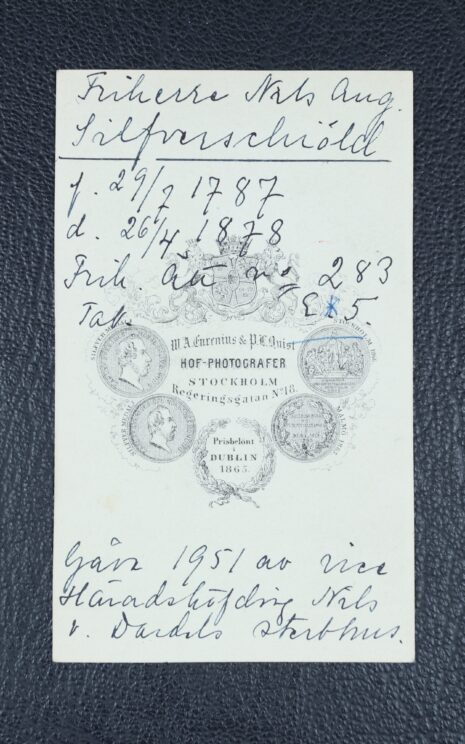 Friherre Nils Aug.
Silfverschiöld
f. 29/7 1787
d. 26/4 1878
Frih. ätt no 283
Tab. 5.
W. A. Eurenius & P. L. Quist
HOF-PHOTOGRAFER
STOCKHOLM
Regeringsgatan No 18.
STOCKHOLM 1866
MALMÖ 1865
Prisbelönt
i
DUBLIN
1865.
Gåva 1951 av vice
Häradshöfding Nils
v. Dardels sterbhus.